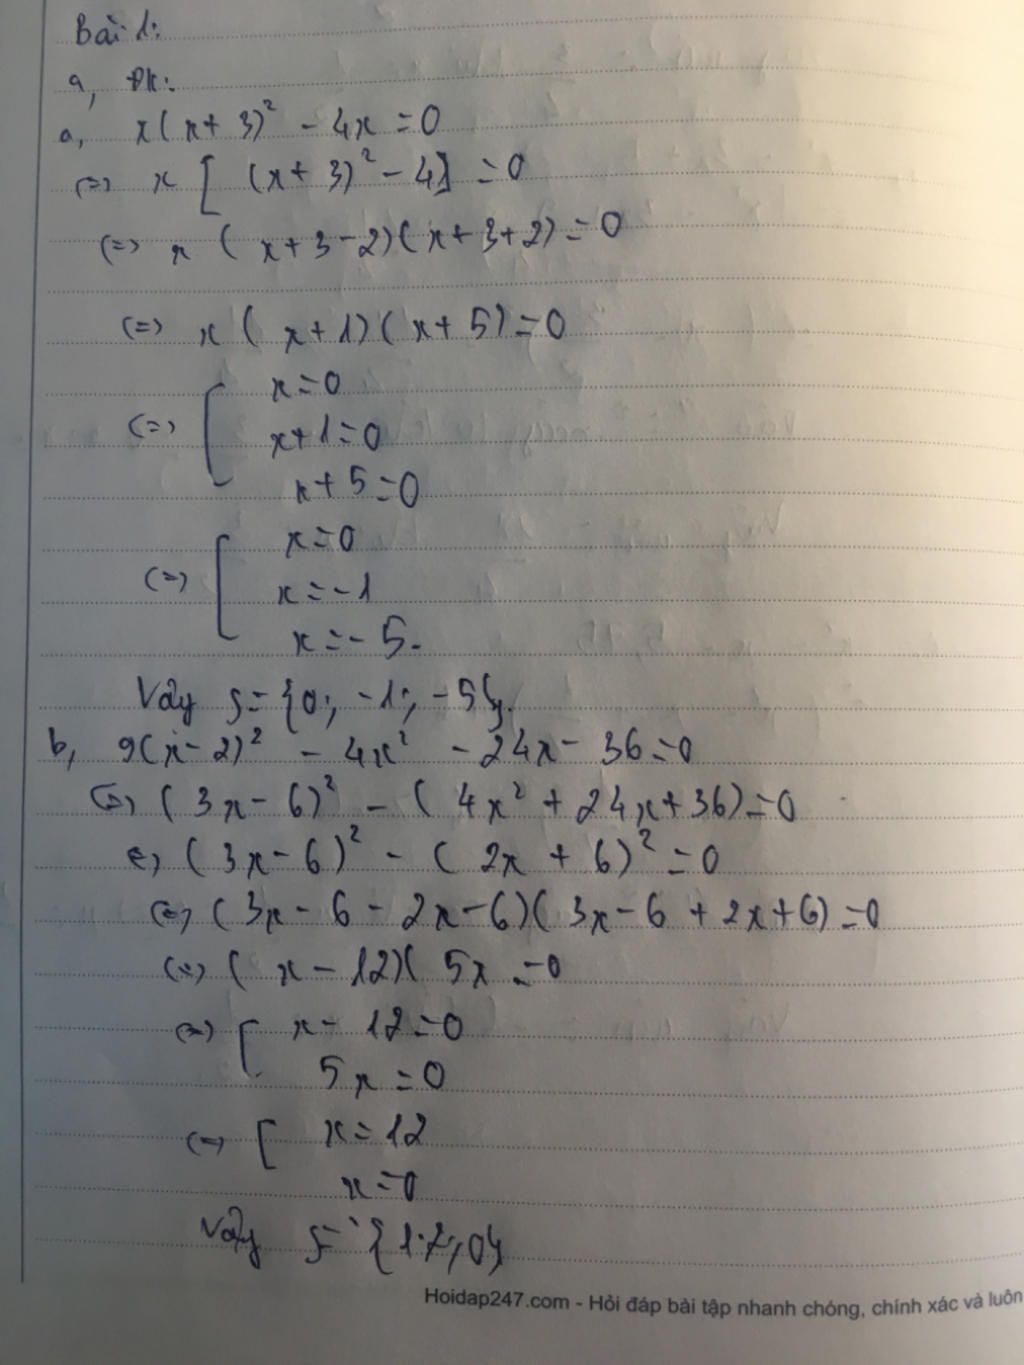 Bài 1:
a, ĐK:
a, x(x+3)² - 4x = 0
(=) x [ (x+3)² - 4] = 0
(=) x ( x+3-2)(x+3+2) = 0
(=) x ( x+1)( x+5) = 0
(=) [ x=0
x+1=0
x+5=0
(=) [ x=0
x=-1
x=-5.
Vậy S={0; -1; -5}.
b, 9(x-2)² - 4x² - 24x - 36=0
(=) ( 3x-6)² - ( 4x² + 24x+36)=0
(=) (3x-6)² - ( 2x + 6)² =0
(=) (3x-6-2x-6)( 3x-6 + 2x+6)=0
(=) ( x-12)( 5x =0
(=) [ x-12=0
5x=0
(=) [ x=12
x=0
Vậy S={12;0}
Hoidap247.com - Hỏi đáp bài tập nhanh chóng, chính xác và luôn